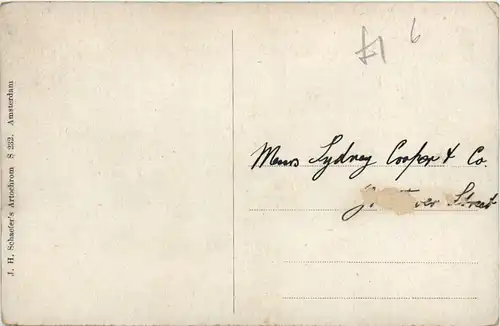 £1 6
J. H. Schaefer's Artochrom S 232. Amsterdam
Messrs Sydney Cooper & Co.
Street